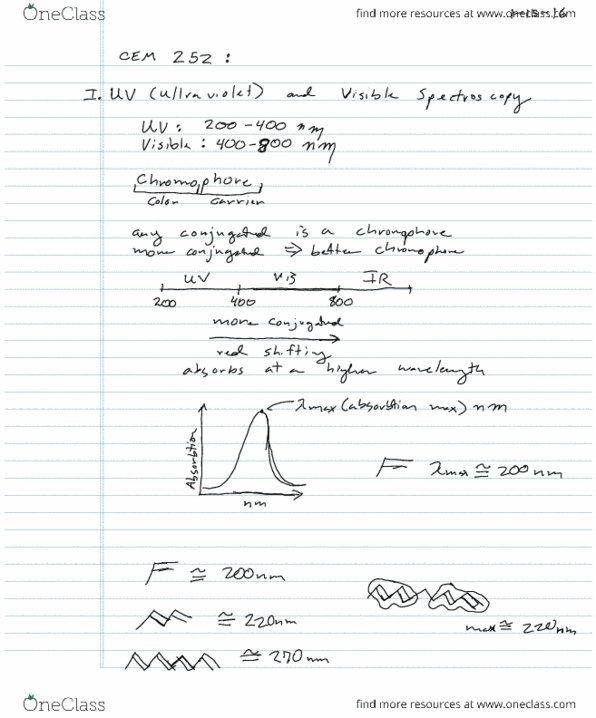 OneClass
find more resources at www.oneclass.com
CEM 252 :
I. UV (Ultraviolet) and Visible Spectroscopy
UV : 200-400 nm
Visible : 400-800 nm
Chromophore
Color Carrier
any conjugated is a chromophore
more conjugated ⇒ better chromophore
UV VIS IR
200 400 800
more conjugated
red shifting
absorbs at a higher wavelength
λmax (absorbtion max) nm
Absorbtion
λmax ≅ 200 nm
nm
≅ 200nm
≅ 220nm
max ≅ 220nm
≅ 270 nm
OneClass
find more resources at www.oneclass.com